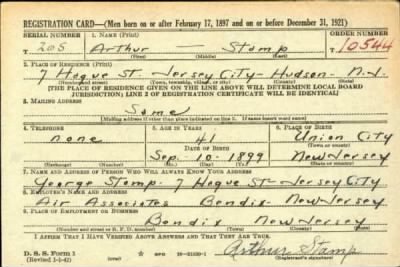 REGISTRATION CARD—(Men born on or after February 17, 1897 and on or before December 31, 1921)
SERIAL NUMBER 1. NAME (Print) ORDER NUMBER
T 205 Arthur — Stamp 10544
(First) (Middle) (Last)
2. PLACE OF RESIDENCE (Print)
7 Hague St. Jersey City - Hudson - N.J.
(Number and street) (Town, township, village, or city) (County) (State)
[THE PLACE OF RESIDENCE GIVEN ON THE LINE ABOVE WILL DETERMINE LOCAL BOARD
JURISDICTION; LINE 2 OF REGISTRATION CERTIFICATE WILL BE IDENTICAL]
3. MAILING ADDRESS
Same
(Mailing address if other than place indicated on line 2. If same insert word same)
4. TELEPHONE 5. AGE IN YEARS 6. PLACE OF BIRTH
none 41 Union City
DATE OF BIRTH (Town or county)
Sep. 10 - 1899 New Jersey
(Exchange) (Number) (Mo.) (Day) (Yr.) (State or country)
7. NAME AND ADDRESS OF PERSON WHO WILL ALWAYS KNOW YOUR ADDRESS
George Stamp - 7 Hague St - Jersey City
8. EMPLOYER'S NAME AND ADDRESS
Air Associates Bendix - New Jersey
9. PLACE OF EMPLOYMENT OR BUSINESS
Bendix New Jersey
(Number and street or R. F. D. number) (Town) (County) (State)
I AFFIRM THAT I HAVE VERIFIED ABOVE ANSWERS AND THAT THEY ARE TRUE.
D. S. S. Form 1
(Revised 1-1-42) (over) GPO
Arthur Stamp
(Registrant's signature)